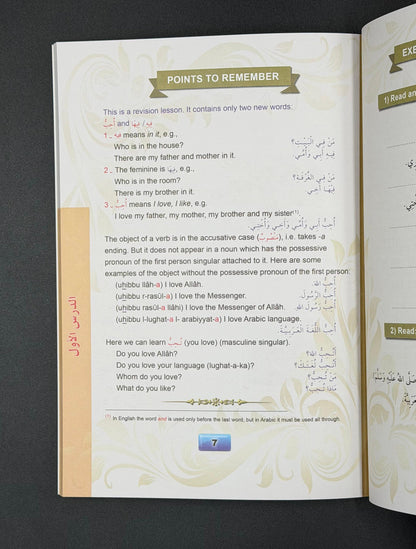 POINTS TO REMEMBER
This is a revision lesson. It contains only two new words:
أُحِبُّ and فِيهِ / فِيهَا
1 ـ فِيهِ means in it, e.g.,
Who is in the house? مَنْ فِي الْبَيْتِ؟
There are my father and mother in it. فِيهِ أَبِي وَأُمِّي
2 ـ The feminine is فِيهَا, e.g.,
Who is in the room? مَنْ فِي الْغُرْفَةِ؟
There is my brother in it. فِيهَا أَخِي
3 ـ أُحِبُّ means I love, I like, e.g.
I love my father, my mother, my brother and my sister(1).
أُحِبُّ أَبِي وَأُمِّي وَأَخِي وَأُخْتِي.
The object of a verb is in the accusative case (مَنْصُوبٌ), i.e. takes -a
ending. But it does not appear in a noun which has the possessive
pronoun of the first person singular attached to it. Here are some
examples of the object without the possessive pronoun of the first person:
(uḥibbu llāh-a) I love Allāh. أُحِبُّ اللهَ.
(uḥibbu r-rasūl-a) I love the Messenger. أُحِبُّ الرَّسُولَ.
(uḥibbu rasūl-a llāhi) I love the Messenger of Allāh. أُحِبُّ رَسُولَ اللهِ.
(uḥibbu l-lughat-a l- arabiyyat-a) I love Arabic language.
أُحِبُّ اللُّغَةَ الْعَرَبِيَّةَ.
Here we can learn تُحِبُّ (you love) (masculine singular).
Do you love Allāh? أَتُحِبُّ اللهَ؟
Do you love your language (lughat-a-ka)? أَتُحِبُّ لُغَتَكَ؟
Whom do you love? مَنْ تُحِبُّ؟
What do you like? مَاذَا تُحِبُّ؟
(1) In English the word and is used only before the last word, but in Arabic it must be used all through.
7
الدرس الأول
EXE
1) Read an
2) Read:
صَلَّى اللهُ عَلَيْهِ وَسَلَّمَ